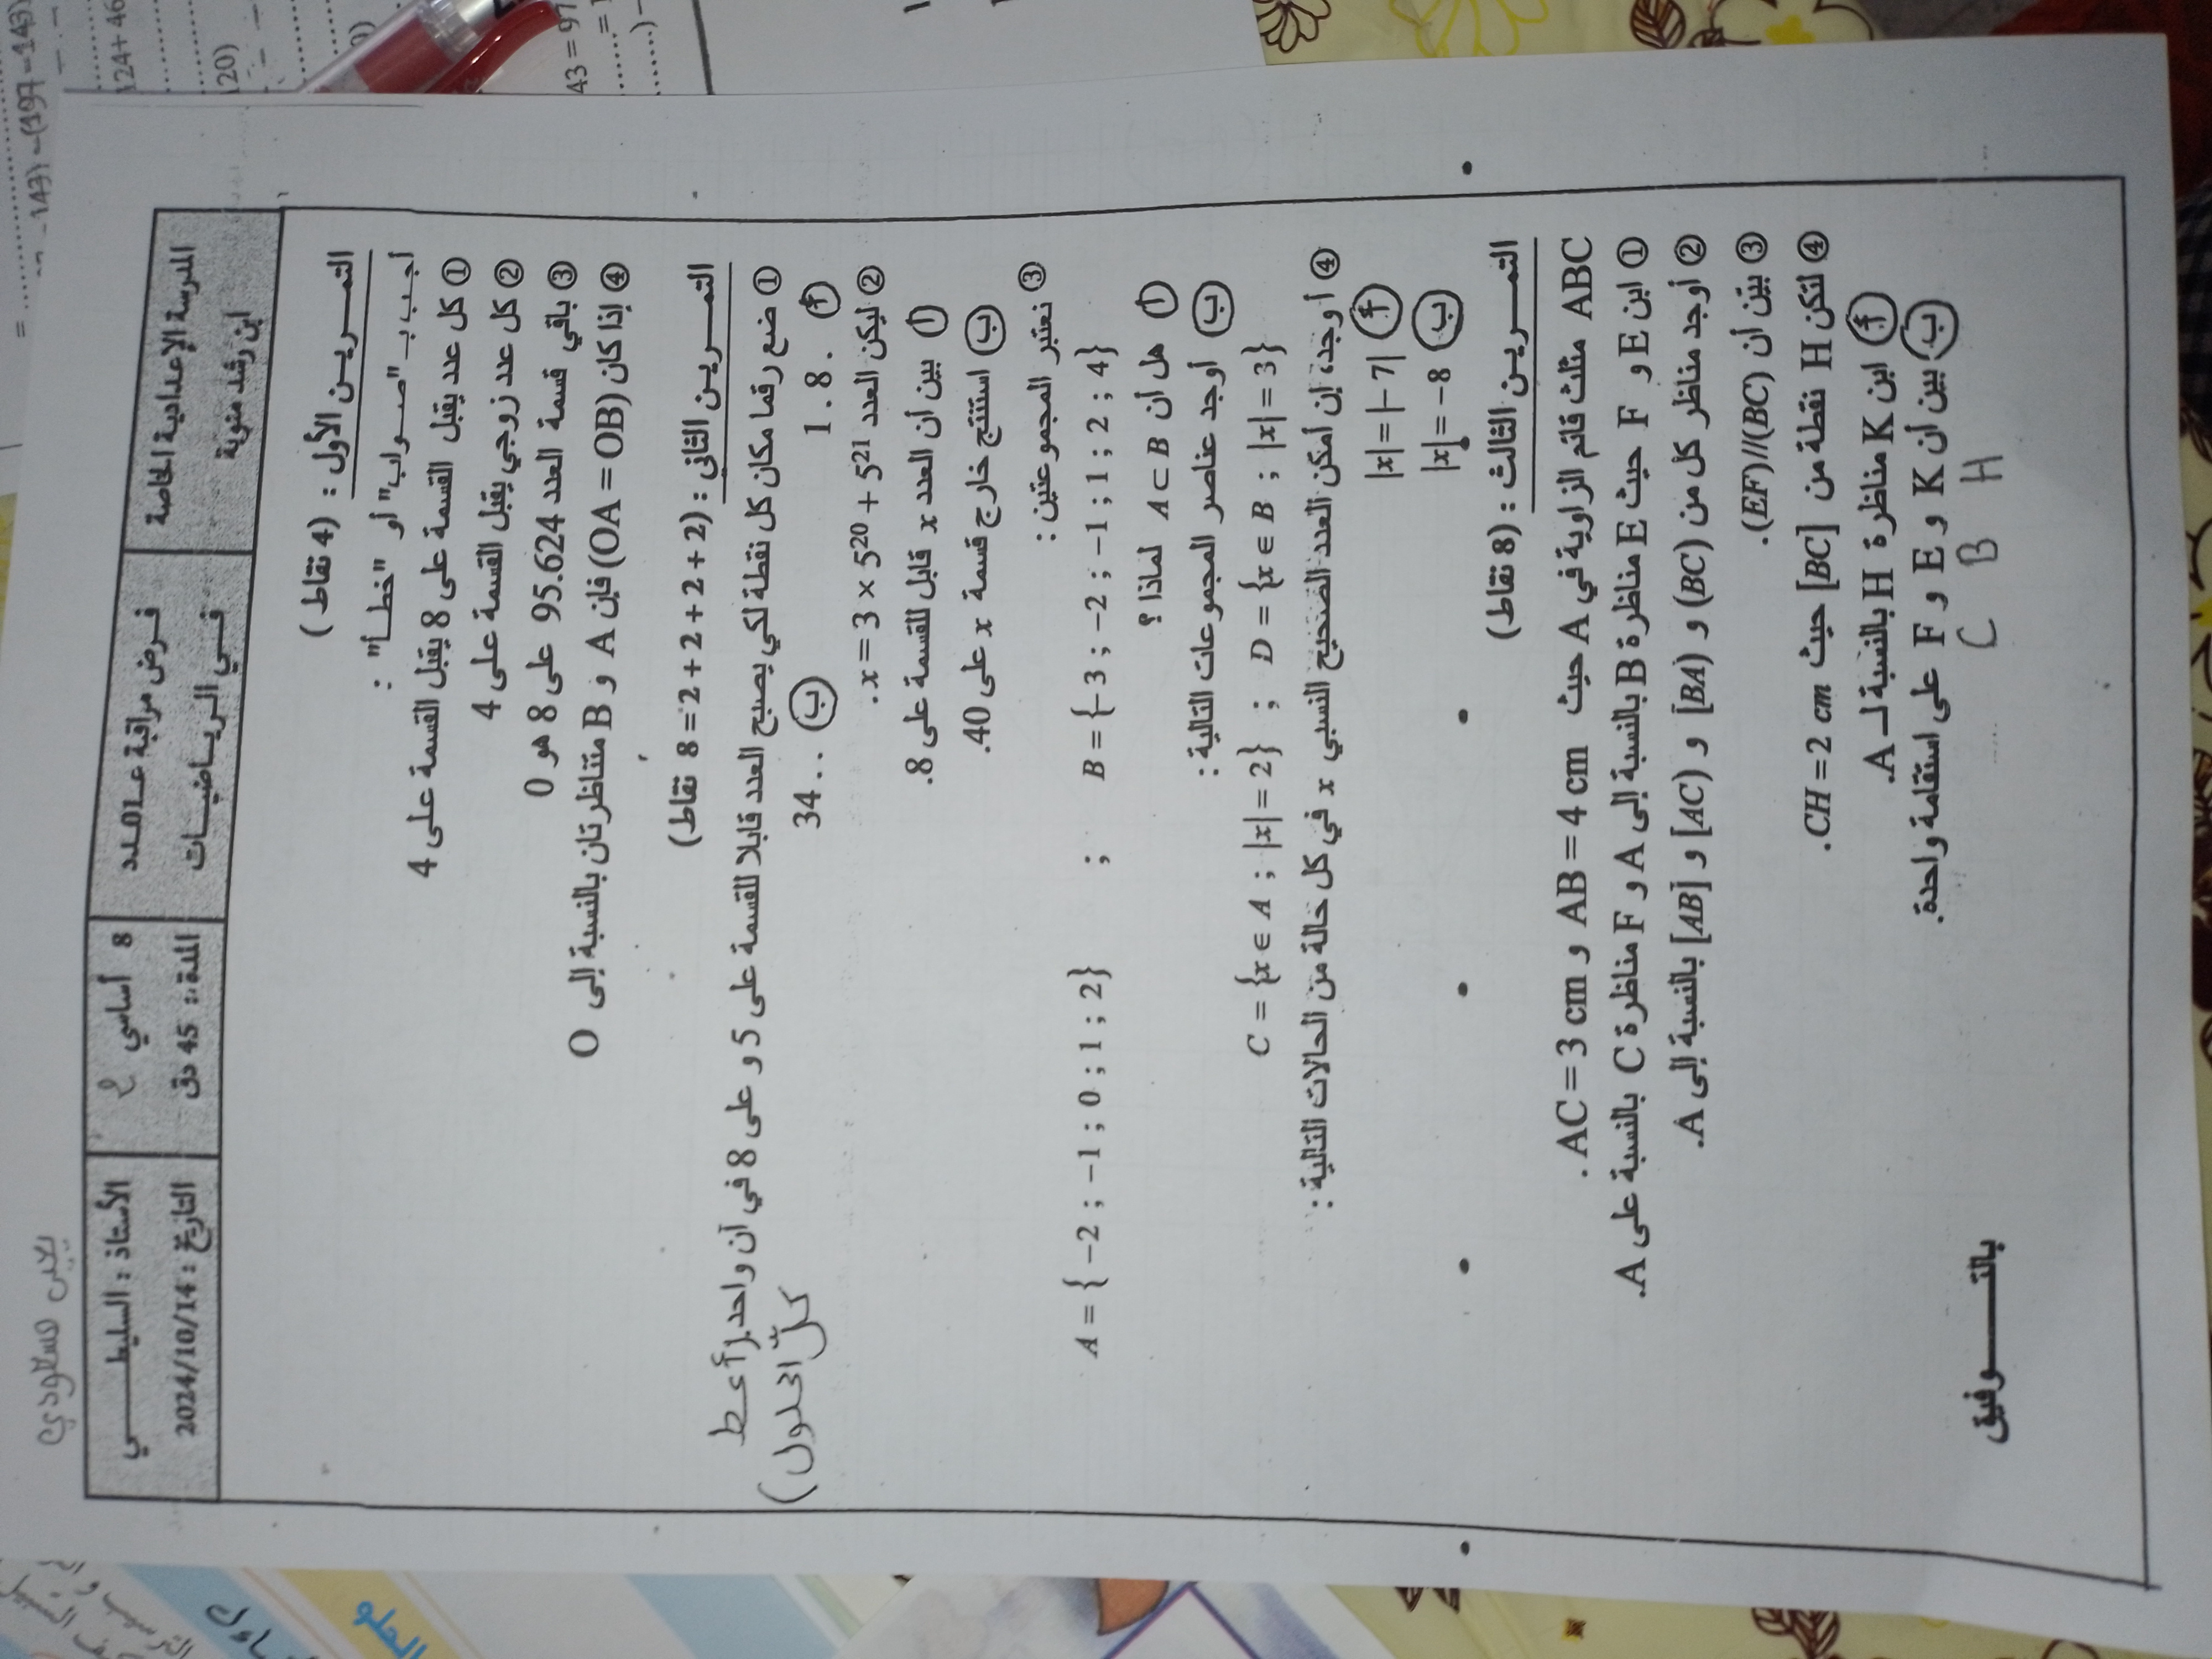 المدرسة الإعدادية الخاصة
ابن رشد منوبة
فرض مراقبة عـدد
في الرياضيات
8 أساسي
المدة : 45 دق
الأستاذ : السليطي
التاريخ : 2024/10/14
التمرين الأول : (4 نقاط)
أجب بـ "صواب" أو "خطأ" :
① كل عدد يقبل القسمة على 8 يقبل القسمة على 4
② كل عدد زوجي يقبل القسمة على 4
③ باقي قسمة العدد 95.624 على 8 هو 0
④ إذا كان (OA = OB) فإن A و B متناظرتان بالنسبة إلى O
التمرين الثاني : (2 + 2 + 2 + 2 = 8 نقاط)
① ضع رقما مكان كل نقطة لكي يصبح العدد قابلا للقسمة على 5 و على 8 في آن واحد. (أعط
كلّ الحلول)
أ 1 . 8 . ب 34 . .
② ليكن العدد x = 3 × 5²⁰ + 5²¹.
أ بين أن العدد x قابل للقسمة على 8.
ب استنتج خارج قسمة x على 40.
③ نعتبر المجموعتين :
A = { −2 ; −1 ; 0 ; 1 ; 2} ; B = {−3 ; −2 ; −1 ; 1 ; 2 ; 4}
أ هل أن A ⊂ B لماذا ؟
ب أوجد عناصر المجموعات التالية :
C = {x ∈ A ; |x| = 2} ; D = {x ∈ B ; |x| = 3}
④ أوجد، إن أمكن العدد الصحيح النسبي x في كل حالة من الحالات التالية :
أ |x| = |−7|
ب |x| = −8
التمرين الثالث : (8 نقاط)
ABC مثلث قائم الزاوية في A حيث AB = 4 cm و AC = 3 cm .
① ابن E و F حيث E مناظرة B بالنسبة إلى A و F مناظرة C بالنسبة على A.
② أوجد مناظر كل من (BC) و [BA) و [AC) و [AB] بالنسبة إلى A.
③ بين أن (EF)//(BC).
④ لتكن H نقطة من [BC] حيث CH = 2 cm .
أ ابن K مناظرة H بالنسبة لـ A.
ب بين أن K و E و F على استقامة واحدة.
C B H
بالتـــوفيق